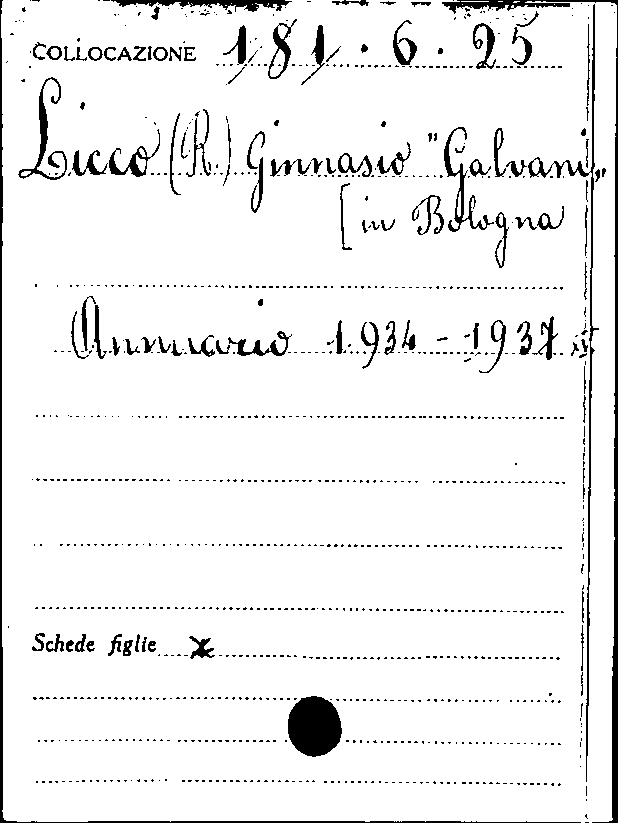 COLLOCAZIONE 181.6.25
Liceo (R.) Ginnasio "Galvani"
[in Bologna
Annuario 1934-1937
Schede figlie x